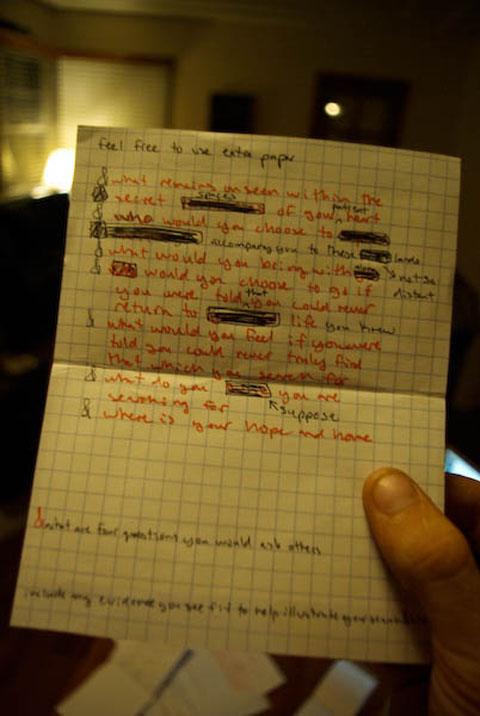 feel free to use extra paper
& what remains unseen within the
spaces patient
secret of your ^ heart
& who would you choose to
accompany you to these lands
& what would you bring with → not so
& would you choose to go if distant
that
you were told ^ you could never
return to life you knew
& what would you feel if you were
told you could never truly find
that which you search for
& what do you you are
searching for ↖ suppose
& where is your hope and home
& what are four questions you would ask others
include any evidence you see fit to help illustrate your